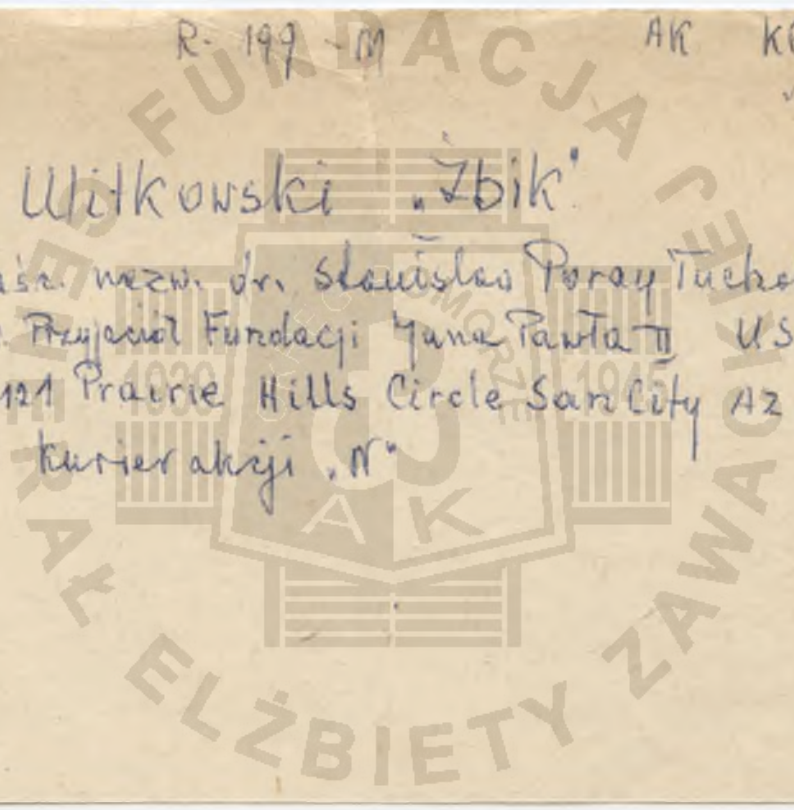 R- 199 -M AK
Witkowski „Żbik"
nazw. dr. Stanisław Poray Tucho
Przyjaciół Fundacji Jana Pawła II US
121 Prairie Hills Circle Sun City AZ
kurier akcji „N"
FUNDACJA GENERAŁ ELŻBIETY ZAWACKIEJ
OKRĘG POMORZE
1939 1945
AK